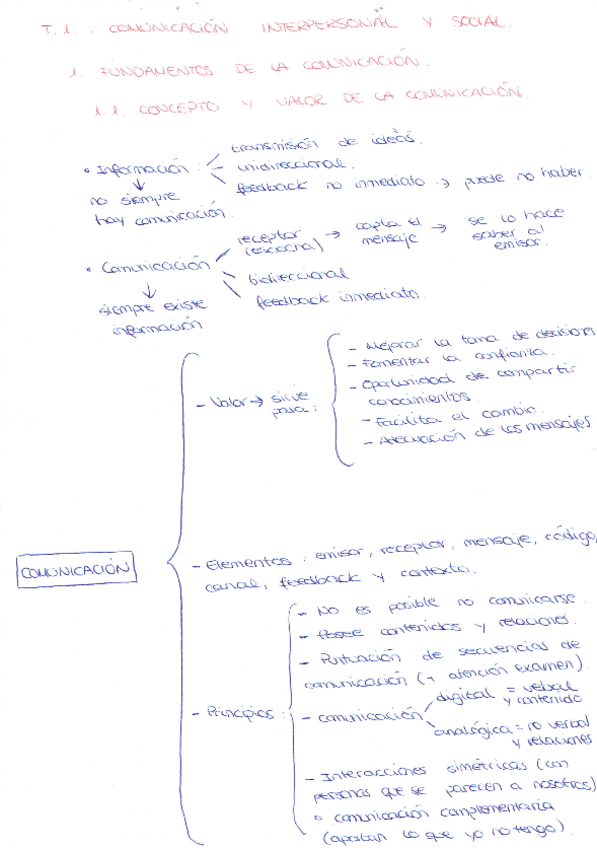 T.1.: COMUNICACIÓN INTERPERSONAL Y SOCIAL.
1. FUNDAMENTOS DE LA COMUNICACIÓN.
1.1. CONCEPTO Y VALOR DE LA COMUNICACIÓN
• Información:
transmisión de ideas.
unidireccional.
feedback no inmediato → puede no haber.
no siempre
hay comunicación.
• Comunicación
receptor
(escucha)
→ capta el
mensaje
→ se lo hace
saber al
emisor.
bidireccional
feedback inmediato.
siempre existe
información
COMUNICACIÓN
- Valor → sirve
para:
- Mejorar la toma de decisiones
- Fomentar la confianza.
- Oportunidad de compartir
conocimientos.
- Facilita el cambio.
- Adecuación de los mensajes
- Elementos: emisor, receptor, mensaje, código,
canal, feedback y contexto.
- Principios:
- No es posible no comunicarse.
- Posee contenidos y relaciones.
- Puntuación de secuencias de
comunicación (+ atención examen).
- comunicación
digital = verbal
y contenido
analógica = no verbal
y relaciones
- Interacciones simétricas (con
personas que se parecen a nosotros)
o comunicación complementaria
(aportan lo que yo no tengo).